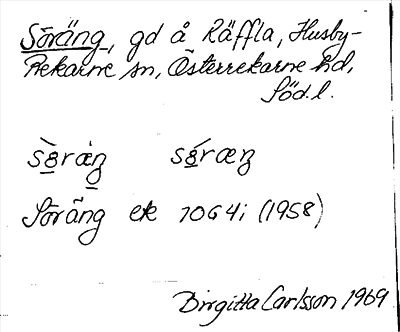 Söräng, gd å Räffla, Husby-
Rekarne sn, Österrekarne hd,
Söd.l.
sö̀rȧŋ sö́ræŋ
Söräng ek 10G4i (1958)
Birgitta Carlsson 1969